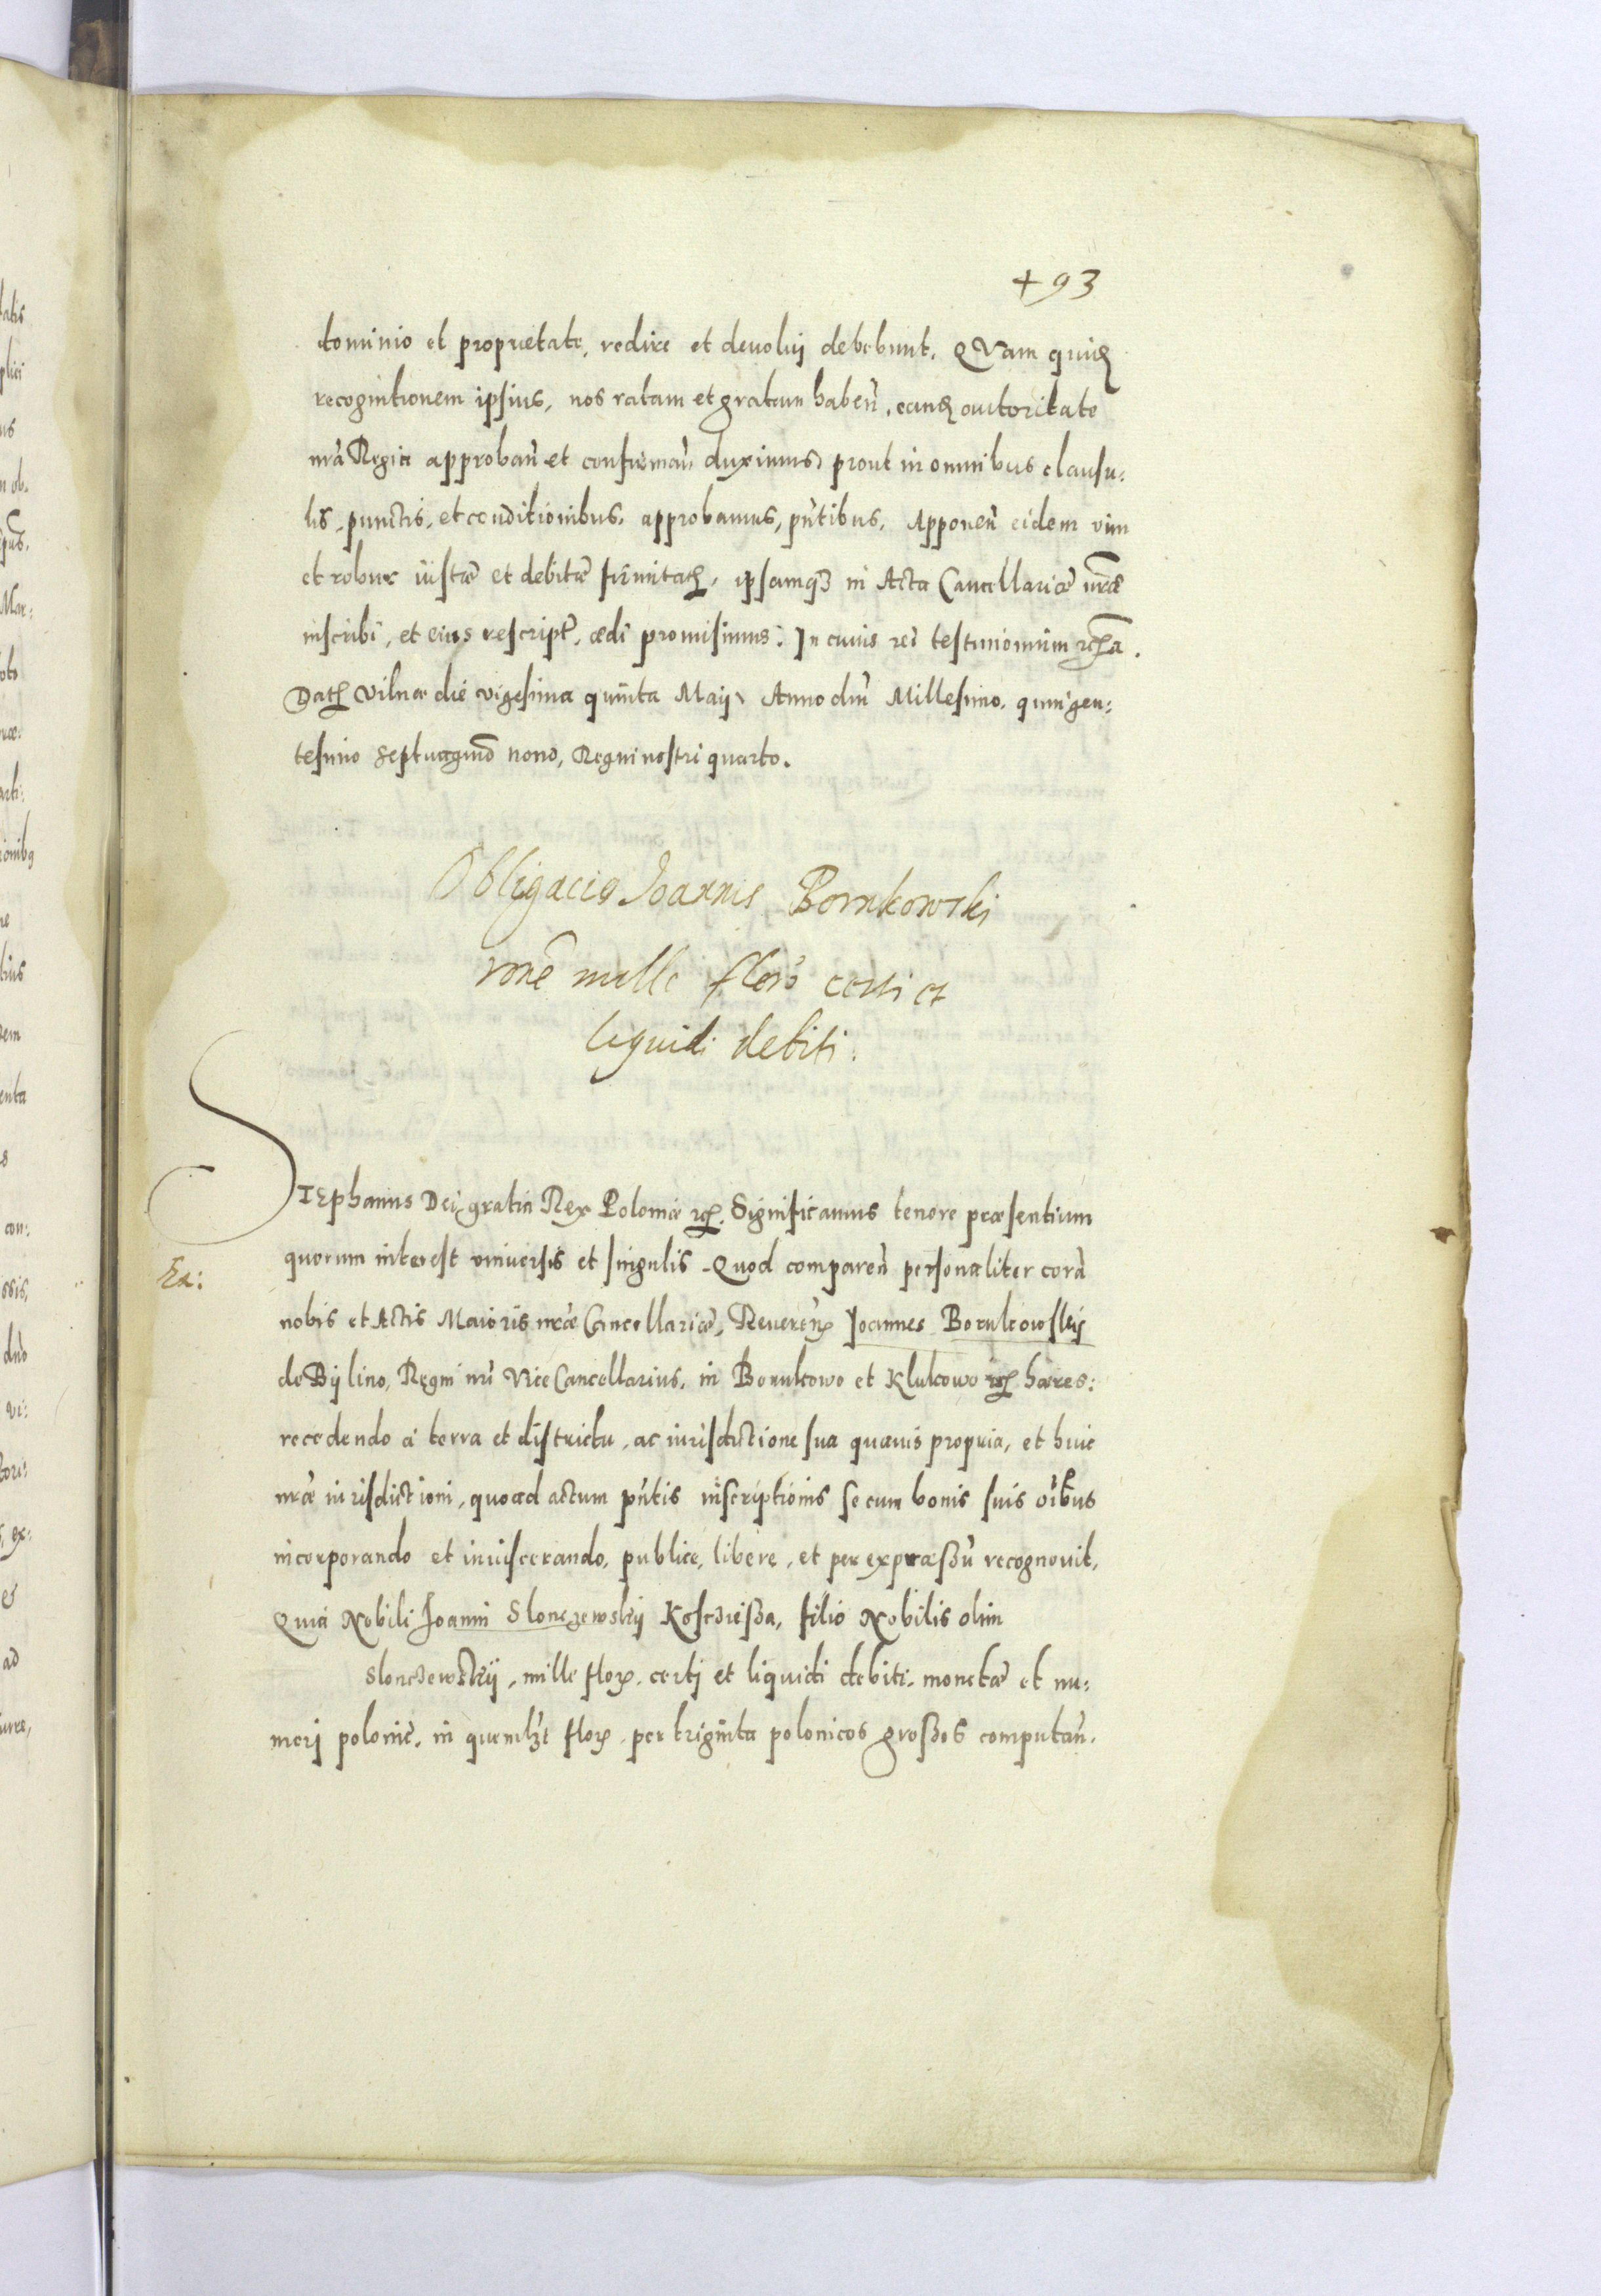 + 93
dominio et proprietate, redire et deuolui debebunt. QVam quid
recognitionem ipsius, nos ratam et gratam haben̄, eand autoritate
nrā Regia approban̄ et confirman̄ duximus, prout in omnibus clausu:
lis, punctis, et conditionibus, approbamus, pn̄tibus. Apponen̄ eidem vim
et robur iustæ et debitæ firmitatꝭ, ipsamqꝫ in Acta Cancellariæ nr̄æ
inscribi, et eius rescript̄, ædi promisimus. In cuius rei testimonium
Datꝭ Vilnæ die vigesima quinta Maij, Anno dn̄i Millesimo, quingen:
tesimo septuagmō nono, Regni nostri quarto.
Obligacio Joannis Bornkowski
ronē mille florō certi et
liquidi debiti.
STEphanus Dei gratia Rex Poloniæ ꝛꝭ. Significamus tenore præsentium
Ex:
quorum interest vniuersis et singulis. Quod comparen̄ personaliter corā
nobis et Actis Maioris nr̄æ Cancellariæ, Reueren̄ꝰ Joannes Bornkowskij
de Bijlino, Regni nr̄i Vice Cancellarius, in Bornkowo et Klukowo ꝛꝭ hæres:
recedendo a terra et districtu, ac iurisdictione sua quauis propria, et huic
nr̄æ iurisdictioni, quoad actum pn̄tis inscriptionis se cum bonis suis oībus
incorporando et inuiscerando, publice, libere, et per expraessū recognouit,
Quia Nobili Joanni Slonczewskij Koschießa, filio Nobilis olim
Slonczewskij, mille floꝝ. certj et liquidi debiti. monetæ et nu:
merj polonic̄. in quemlꝫt floꝝ. per triginta polonicos großos computan̄.